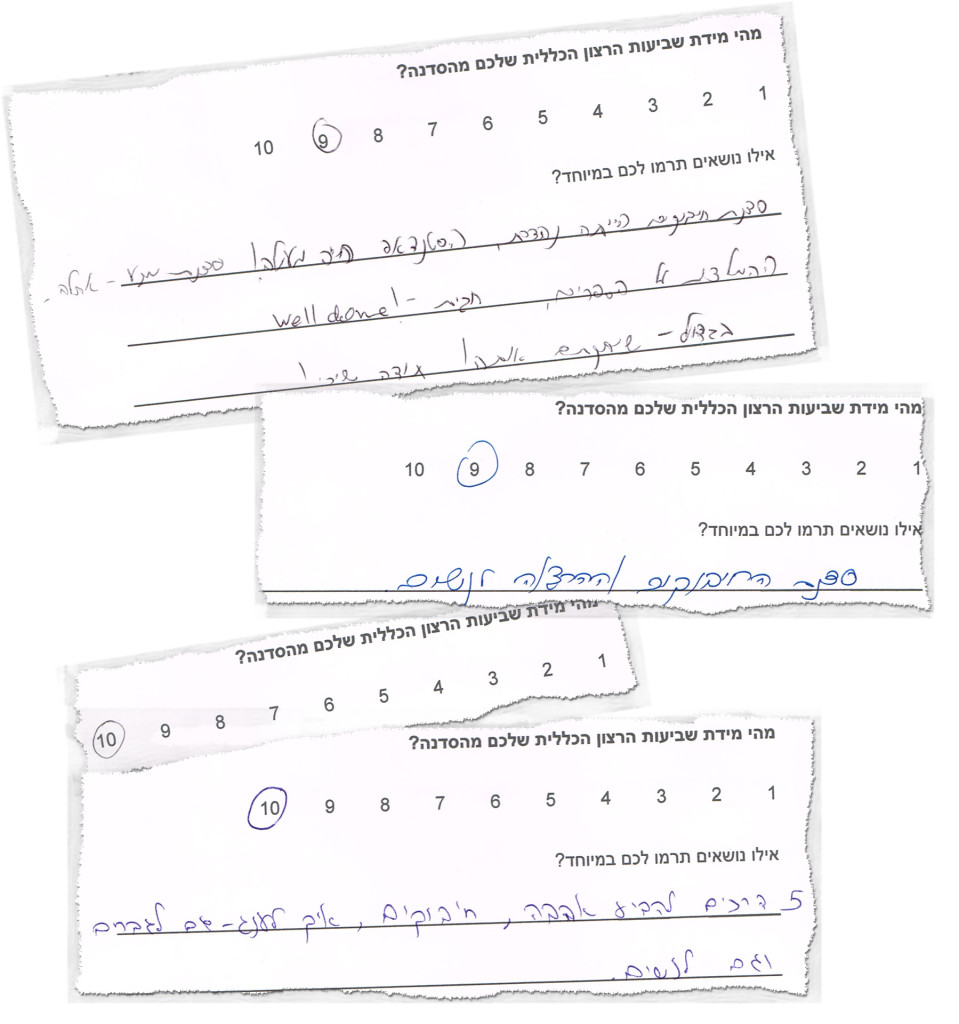 מהי מידת שביעות הרצון הכללית שלכם מהסדנה?
1 2 3 4 5 6 7 8 9 10
אילו נושאים תרמו לכם במיוחד?
סדנת חיבוקים הייתה נהדרת, הסטנדאפ היה מעולה! סדנת מגע -
ההמלצות על הספרים, חבית - well done!
בגדול - שיחקתם אותה! תודה שירי!
מהי מידת שביעות הרצון הכללית שלכם מהסדנה?
1 2 3 4 5 6 7 8 9 10
אילו נושאים תרמו לכם במיוחד?
סדנת החיבוקים וההרצאה לנשים
מהי מידת שביעות הרצון הכללית שלכם מהסדנה?
1 2 3 4 5 6 7 8 9 10
מהי מידת שביעות הרצון הכללית שלכם מהסדנה?
1 2 3 4 5 6 7 8 9 10
אילו נושאים תרמו לכם במיוחד?
5 דרכים להביע אהבה, חיבוקים, איך לענג - גם לגברים
וגם לנשים.